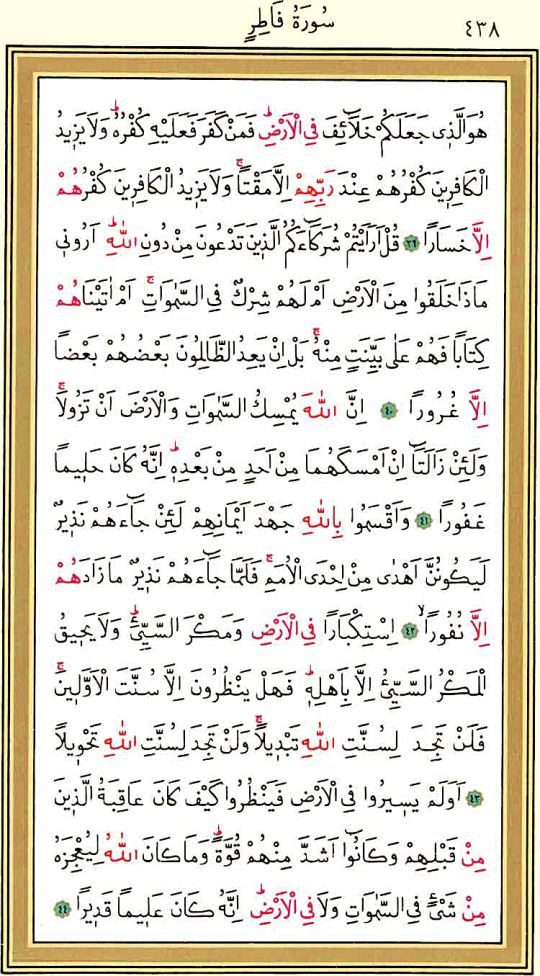 سُورَةُ فَاطِرٍ ٤٣٨
هُوَ الَّذٖى جَعَلَكُمْ خَلَٓائِفَ فِى الْاَرْضِؕ فَمَنْ كَفَرَ فَعَلَيْهِ كُفْرُهُؕ وَلَا يَزٖيدُ
الْكَافِرٖينَ كُفْرُهُمْ عِنْدَ رَبِّهِمْ اِلَّا مَقْتًاۚ وَلَا يَزٖيدُ الْكَافِرٖينَ كُفْرُهُمْ
اِلَّا خَسَارًا ٣٩ قُلْ اَرَاَيْتُمْ شُرَكَٓاءَكُمُ الَّذٖينَ تَدْعُونَ مِنْ دُونِ اللّٰهِؕ اَرُونٖى
مَاذَا خَلَقُوا مِنَ الْاَرْضِ اَمْ لَهُمْ شِرْكٌ فِى السَّمٰوَاتِۚ اَمْ اٰتَيْنَاهُمْ
كِتَابًا فَهُمْ عَلٰى بَيِّنَتٍ مِنْهُۚ بَلْ اِنْ يَعِدُ الظَّالِمُونَ بَعْضُهُمْ بَعْضًا
اِلَّا غُرُورًا ٤٠ اِنَّ اللّٰهَ يُمْسِكُ السَّمٰوَاتِ وَالْاَرْضَ اَنْ تَزُولَاۚ
وَلَئِنْ زَالَتَٓا اِنْ اَمْسَكَهُمَا مِنْ اَحَدٍ مِنْ بَعْدِهٖؕ اِنَّهُ كَانَ حَلٖيمًا
غَفُورًا ٤١ وَاَقْسَمُوا بِاللّٰهِ جَهْدَ اَيْمَانِهِمْ لَئِنْ جَٓاءَهُمْ نَذٖيرٌ
لَيَكُونُنَّ اَهْدٰى مِنْ اِحْدَى الْاُمَمِۚ فَلَمَّا جَٓاءَهُمْ نَذٖيرٌ مَا زَادَهُمْ
اِلَّا نُفُورًاۙ ٤٢ اِسْتِكْبَارًا فِى الْاَرْضِ وَمَكْرَ السَّيِّئِؕ وَلَا يَحٖيقُ
الْمَكْرُ السَّيِّئُ اِلَّا بِاَهْلِهٖؕ فَهَلْ يَنْظُرُونَ اِلَّا سُنَّتَ الْاَوَّلٖينَۚ
فَلَنْ تَجِدَ لِسُنَّتِ اللّٰهِ تَبْدٖيلًاۚ وَلَنْ تَجِدَ لِسُنَّتِ اللّٰهِ تَحْوٖيلًا
٤٣ اَوَلَمْ يَسٖيرُوا فِى الْاَرْضِ فَيَنْظُرُوا كَيْفَ كَانَ عَاقِبَةُ الَّذٖينَ
مِنْ قَبْلِهِمْ وَكَانُٓوا اَشَدَّ مِنْهُمْ قُوَّةًؕ وَمَا كَانَ اللّٰهُ لِيُعْجِزَهُ
مِنْ شَیْءٍ فِى السَّمٰوَاتِ وَلَا فِى الْاَرْضِؕ اِنَّهُ كَانَ عَلٖيمًا قَدٖيرًا ٤٤